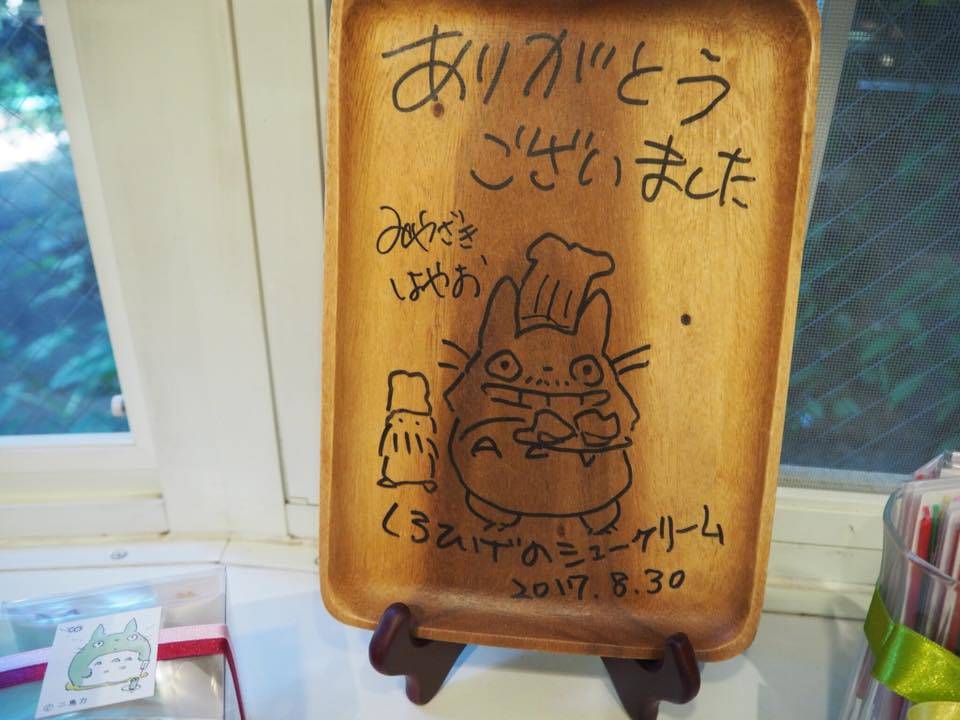 ありがとう
ございました
みやざき
はやお
くろひげのシュークリーム
2017.8.30
© 二馬力